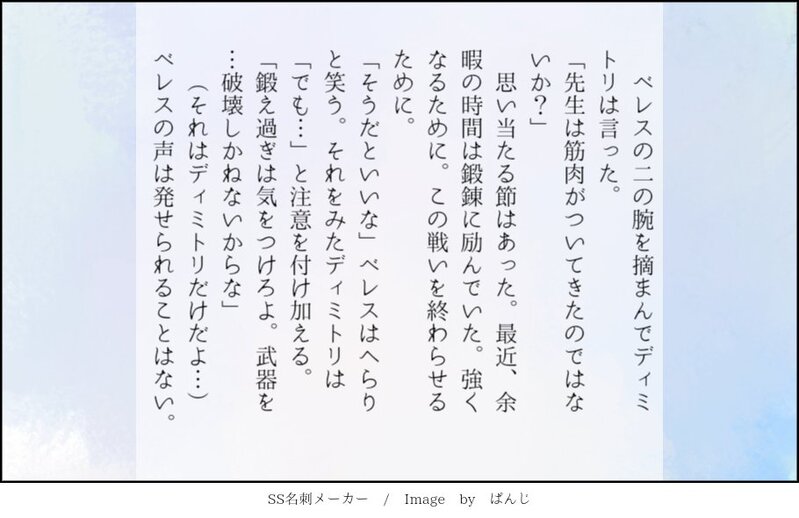 ベレスの二の腕を摘まんでディミ
トリは言った。
「先生は筋肉がついてきたのではな
いか？」
　思い当たる節はあった。最近、余
暇の時間は鍛錬に励んでいた。強く
なるために。この戦いを終わらせる
ために。
「そうだといいな」ベレスはへらり
と笑う。それをみたディミトリは
「でも…」と注意を付け加える。
「鍛え過ぎは気をつけろよ。武器を
…破壊しかねないからな」
　（それはディミトリだけだよ…）
ベレスの声は発せられることはない。
SS名刺メーカー　/　Image　by　ばんじ